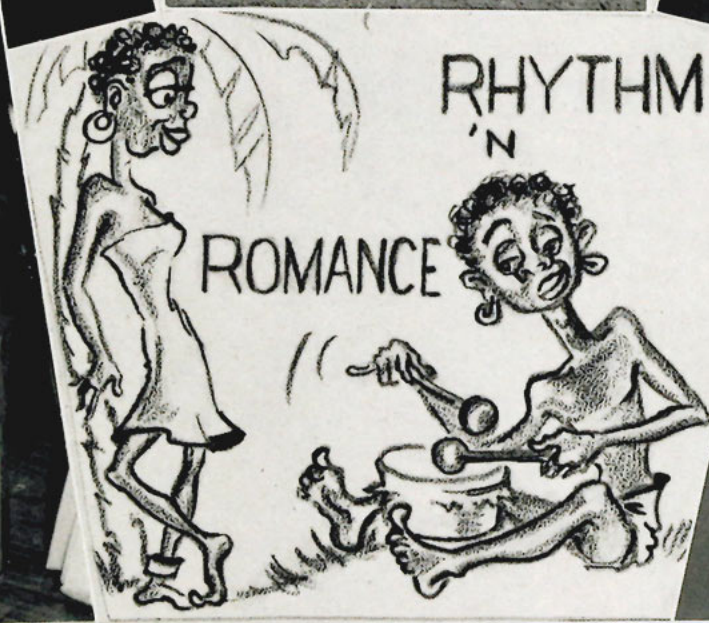 RHYTHM
'N
ROMANCE